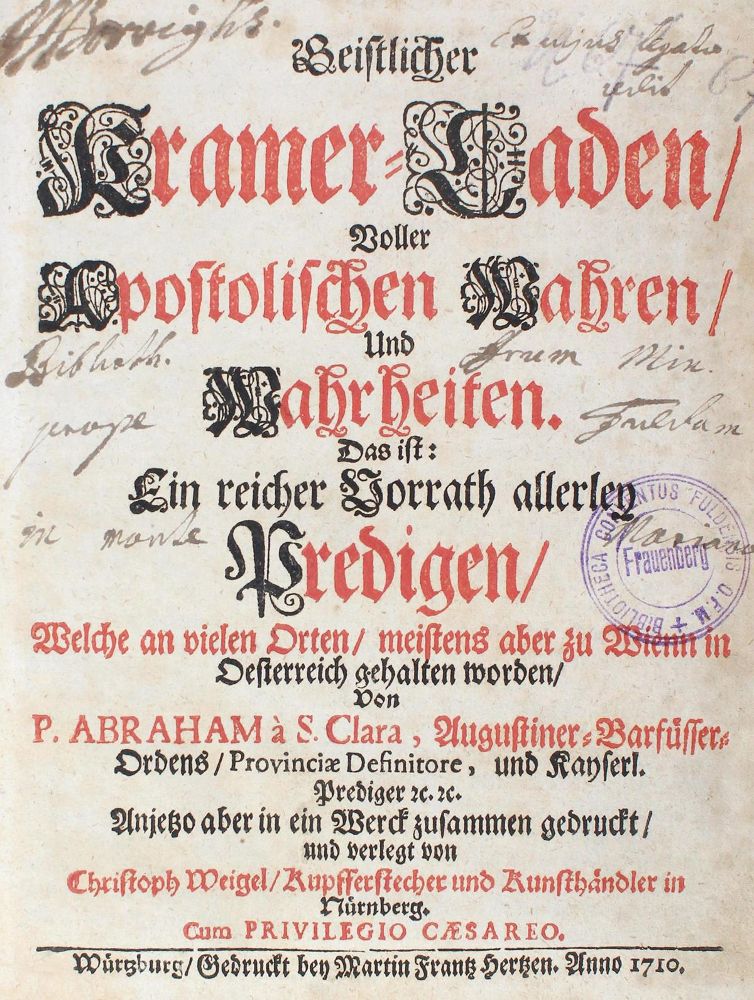 Ex cujus legato
Geistlicher
Kramer-Laden/
Voller
Apostolischen Wahren/
Und
Biblioth. Frum Min.
Wahrheiten.
prope Fuldam
Das ist:
Ein reicher Vorrath allerley
in monte Mariano
Predigen/
BIBLIOTHECA CONVENTUS FULDENSIS O.F.M. +
Frauenberg
Welche an vielen Orten/ meistens aber zu Wienn in
Oesterreich gehalten worden/
Von
P. ABRAHAM à S. Clara, Augustiner-Barfüsser-
Ordens/ Provinciæ Definitore, und Kayserl.
Prediger ꝛc. ꝛc.
Anjetzo aber in ein Werck zusammen gedruckt/
und verlegt von
Christoph Weigel/ Kupfferstecher und Kunsthändler in
Nürnberg.
Cum PRIVILEGIO CÆSAREO.
Würtzburg/ Gedruckt bey Martin Frantz Hertzen. Anno 1710.